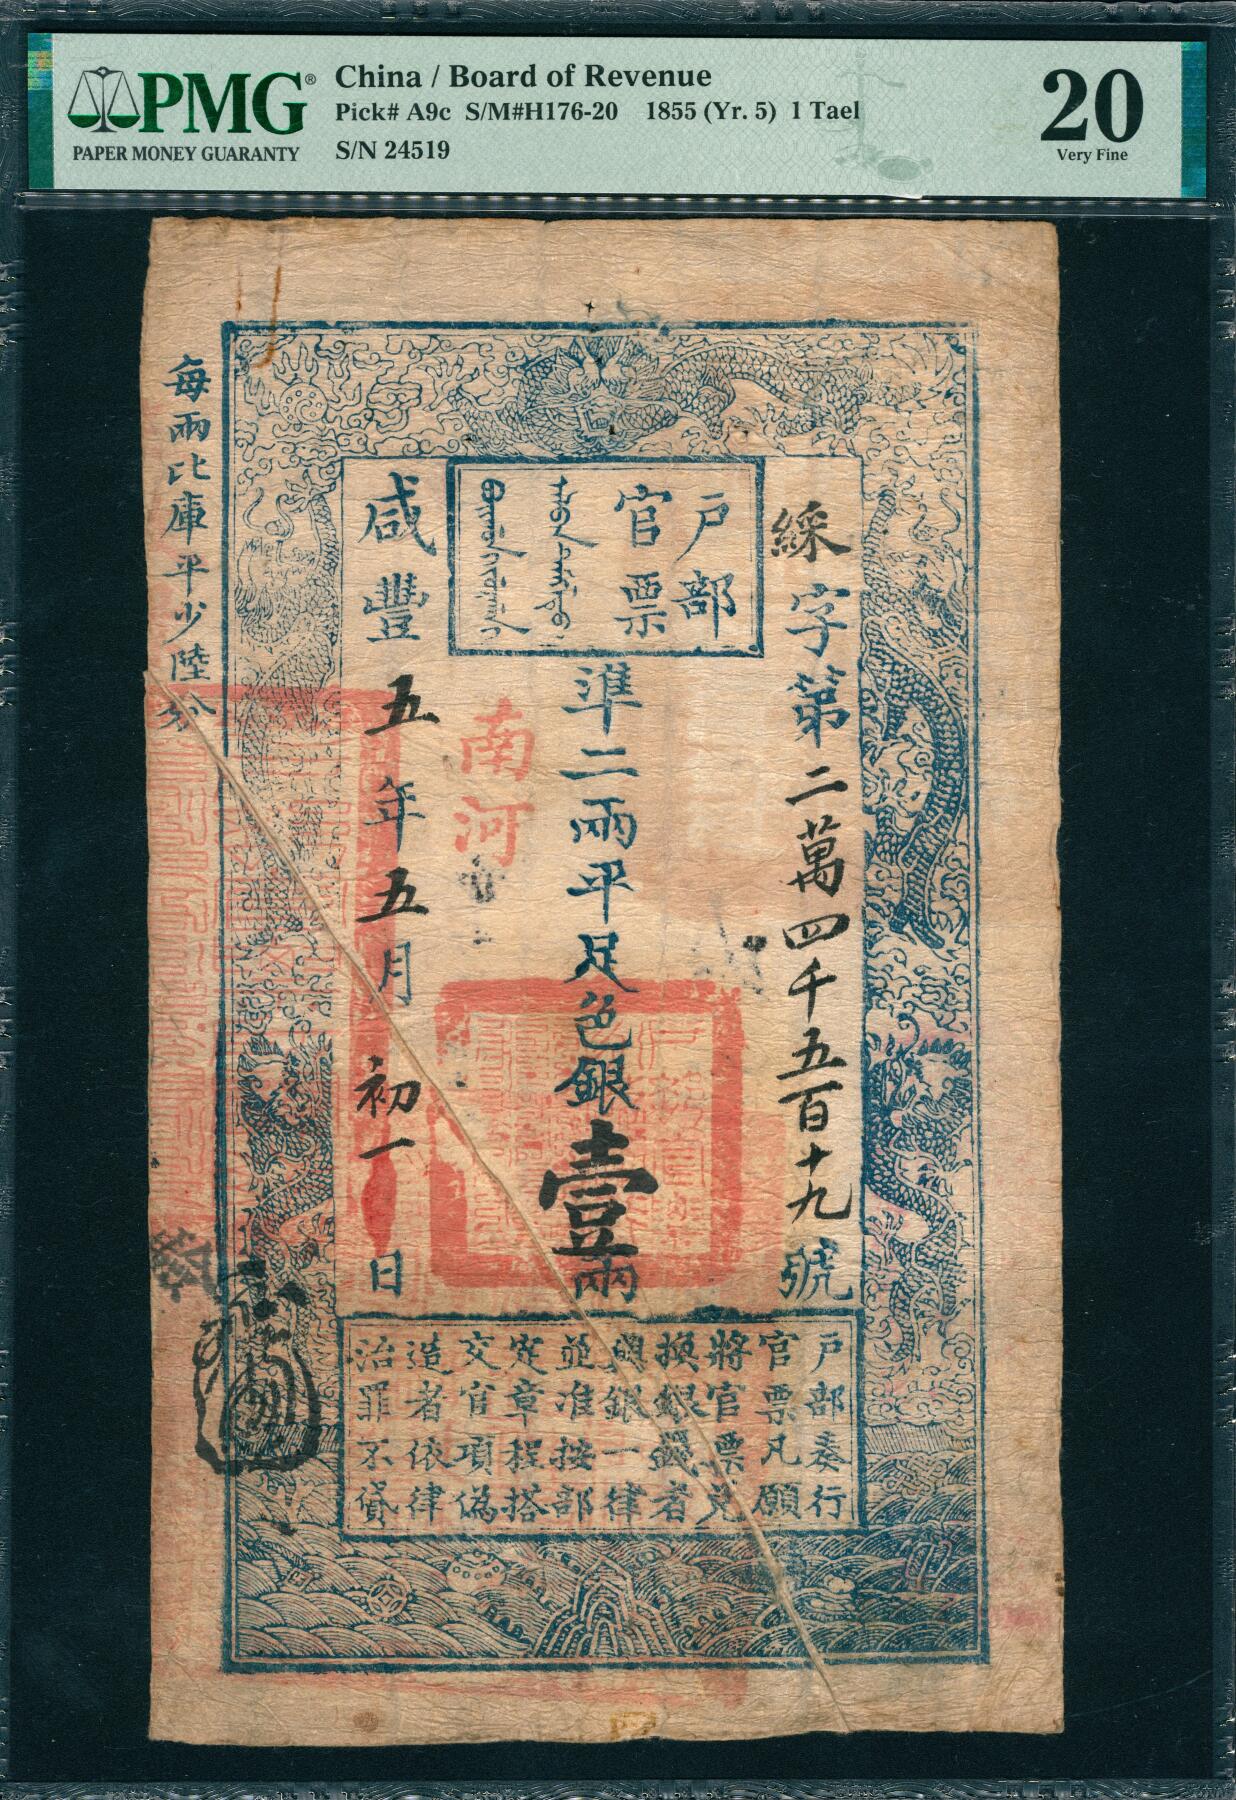 PMG®
PAPER MONEY GUARANTY
China / Board of Revenue
Pick# A9c S/M#H176-20 1855 (Yr. 5) 1 Tael
S/N 24519
20
Very Fine
戶部
官票
綵字第二萬四千五百十九號
準二兩平足色銀壹兩
南河
咸豐五年五月初一日
每兩比庫平少陸分
戶部奏行
官票凡願
將官票兌
換銀錢者
與銀一律
並准按部
定章程搭
交官項偽
造者依律
治罪不貸